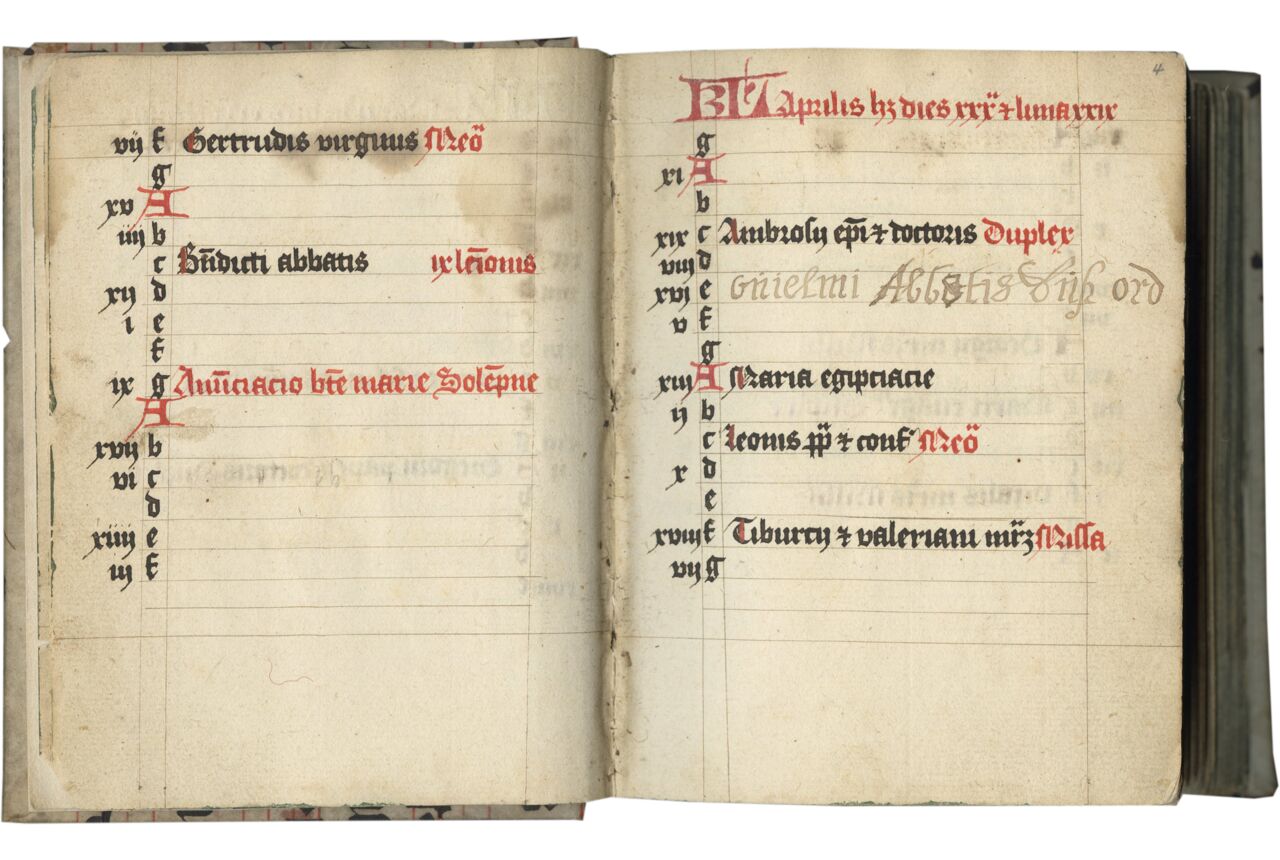 vij f Gertrudis virginis Meō
g
xv A
iiij b
c Bn̄dicti abbatis ix lc̄ionis
xij d
i e
f
ix g Anūciacio bt̄e marie Solēpne
A
xvij b
vi c
d
xiiij e
iij f
4
KL Aprilis hꝫ dies xxx ⁊ luna xxix
g
xi A
b
xix c Ambrosij ep̄i ⁊ doctoris Duplex
viij d
xvj e Guielmi Abbatis ord
v f
g
xiij A Maria egipciace
ij b
c Leonis pp̄ ⁊ conf Meō
x d
e
xviij f Tiburcij ⁊ valeriani mr̄ꝫ Missa
vij g